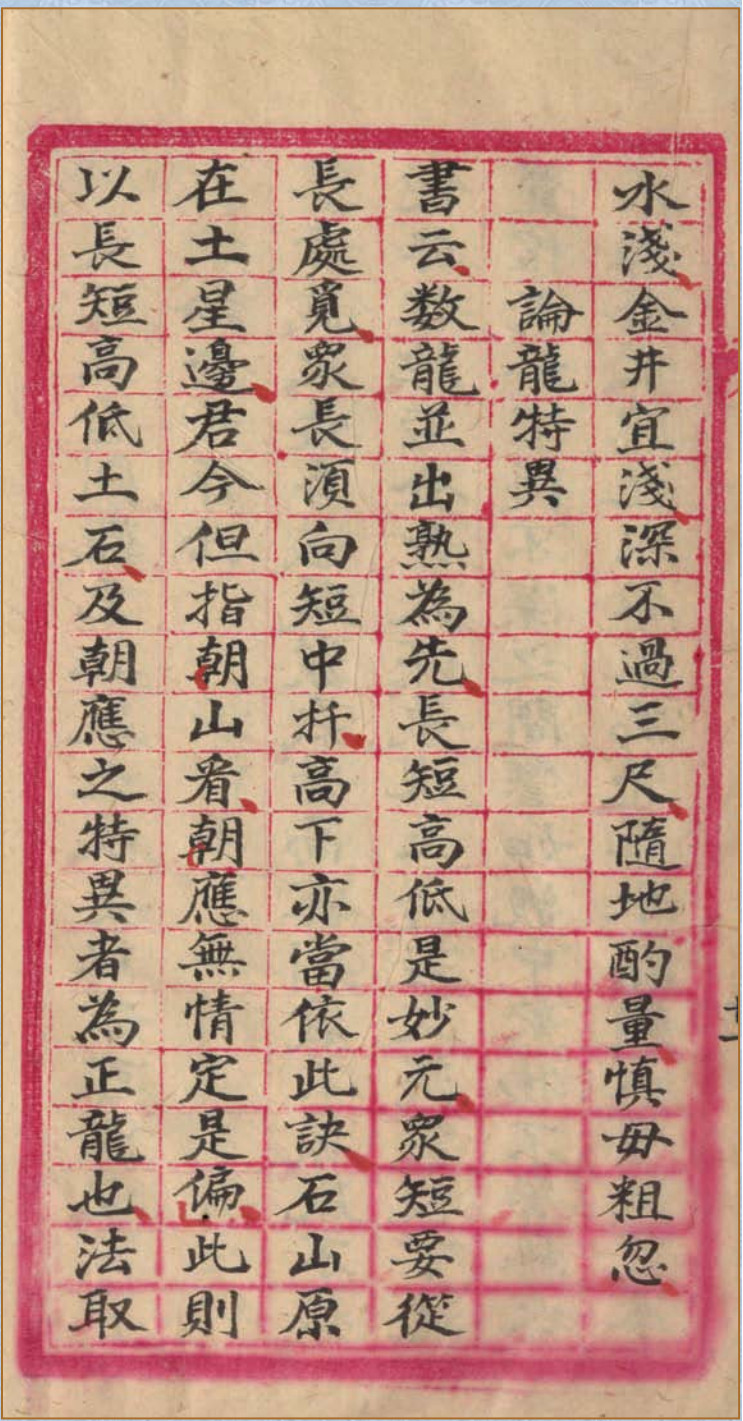 水淺金井宜淺深不過三尺隨地酌量慎毋粗忽
論龍特異
書云数龍並出熟為先長短高低是妙元眾短要從
長處覓眾長湏向短中扦高下亦當依此訣石山原
在土星邊君今但指朝山看朝應無情定是偏此則
以長短高低土石及朝應之特異者為正龍也法取